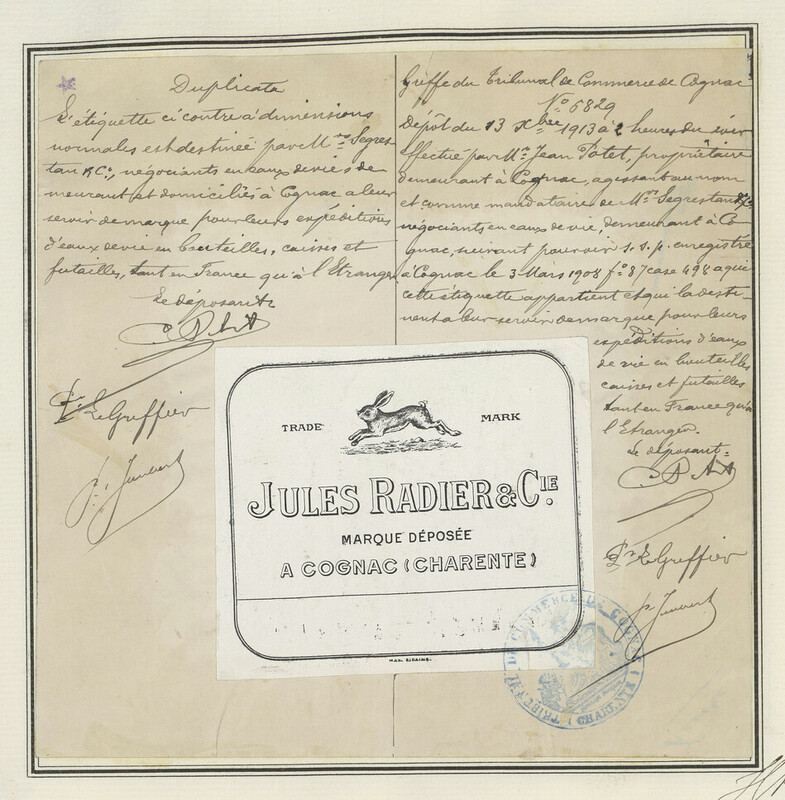 Duplicata
L'étiquette ci contre à dimensions
normales est destinée par M.rs Segres-
tan & C.ie, négociants en eaux de vie de-
meurant et domiciliés à Cognac a leur
servir de marque pour leurs expéditions
d'eaux de vie en bouteilles, caisses et
futailles, tant en France qu'à l'Etranger
Le déposant
P.r Le Greffier
Greffe du Tribunal de Commerce de Cognac
N.o 6829
Dépôt du 13 Xbre 1913 à 2 heures du soir
Effectué par M.r Jean Potet, propriétaire
demeurant à Cognac, agissant au nom
et comme mandataire de M.rs Segrestan & C.ie
négociants en eaux de vie, demeurant à Co-
gnac, suivant pouvoir s.s.p. enregistré
à Cognac le 3 Mars 1908 f.o 87 case 498 a qui
cette étiquette appartient et qui la desti-
nent a leur servir de marque pour leurs
expéditions d'eaux
de vie en bouteilles
caisses et futailles
tant en France qu'à
l'Etranger.
Le déposant
P.r Le Greffier
TRADE MARK
JULES RADIER & CIE.
MARQUE DÉPOSÉE
A COGNAC (CHARENTE)
TRIBUNAL DE COMMERCE DE COGNAC